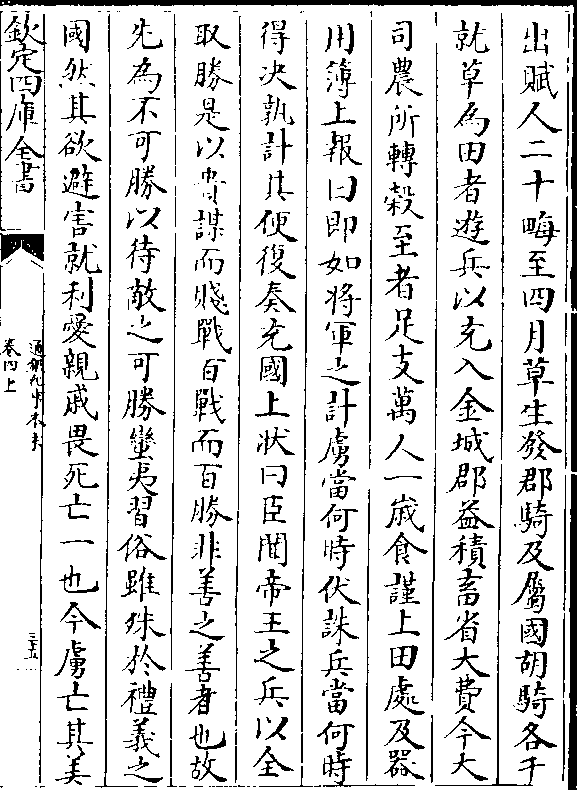 出賦人二十畮至四月草生發郡騎及屬國胡騎各千
就草為田者遊兵以充入金城郡益積畜省大費今大
司農所轉穀至者足支萬人一歲食謹上田處及器
用簿上報曰即如將軍之計虜當何時伏誅兵當何時
得決孰計其便復奏充國上狀曰臣聞帝王之兵以全
取勝是以貴謀而賤戰百戰而百勝非善之善者也故
先為不可勝以待敵之可勝蠻夷習俗雖殊於禮義之
國然其欲避害就利愛親戚畏死亡一也今虜亡其美
欽定四庫全書
通鑑紀事本末
卷四上
三十五